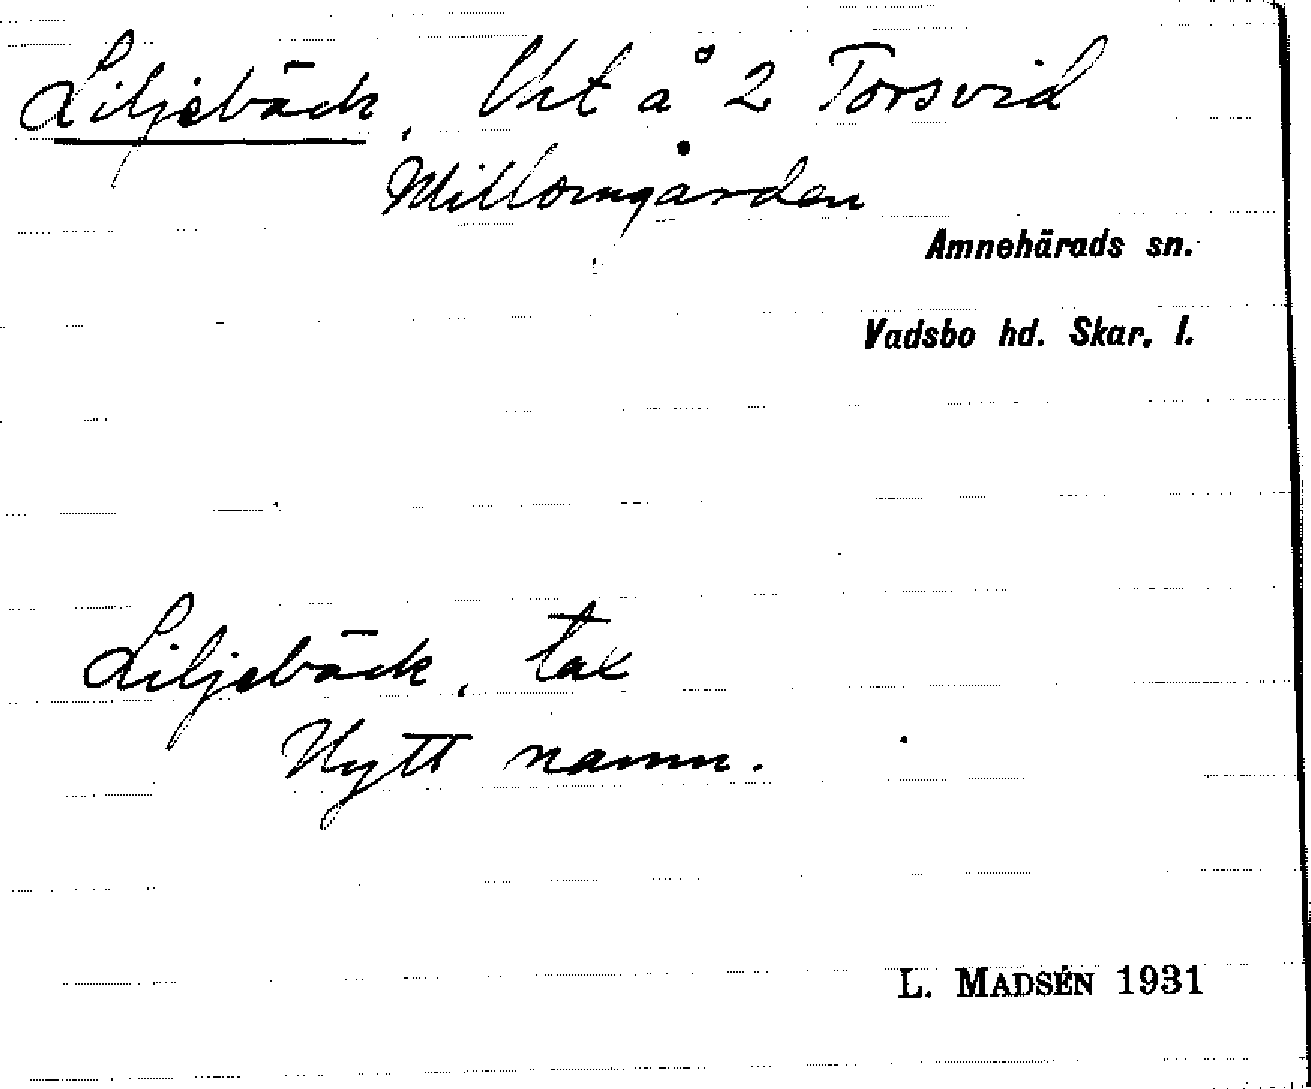 Liljebäck, Urt å 2 Torsvid
Millomgården
Amnehärads sn.
Vadsbo hd. Skar. l.
Liljebäck, tax
Nytt namn.
L. MADSÉN 1931